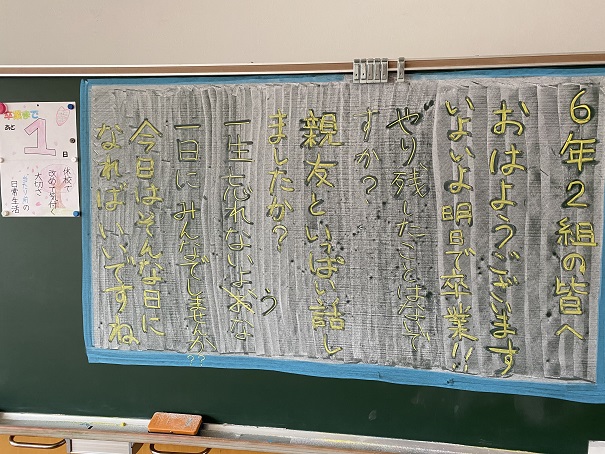 6年2組の皆へ
おはようございます
いよいよ明日で卒業!!
やり残したことはないで
すか?
親友といっぱい話し
ましたか?
う
一生忘れないよおな
一日にみんなでしませんか??
今日はそんな日に
なればいいですね
卒業まで
あと
1
日
休校で
改めて気付く
大切さ
当たり前の
日常生活